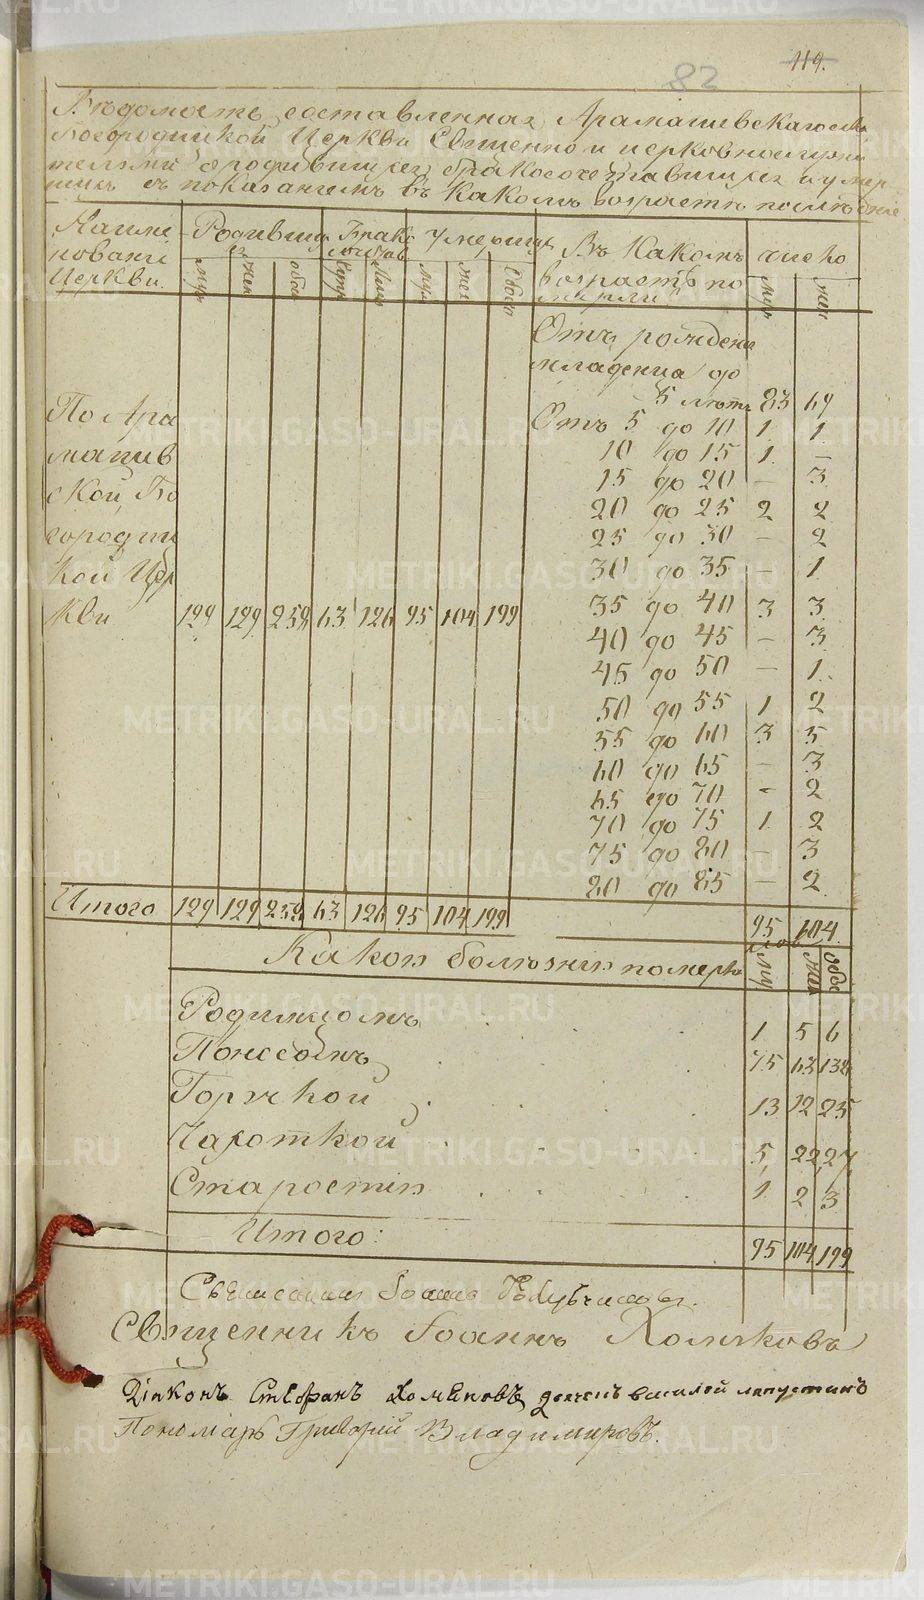 119.
82
Вѣдомость составленная Арамашевскаго села
Богородицкой Церкви Священно и церковнослужи
телями о родившихся бракосочетавшихся и умер
ших съ показаніемъ въ какомъ возрастѣ
Наиме Родивших Брако Умершихъ Въ какомъ число
нованіе ся
Церкви. муж жен обое муж жен обоего возрастѣ по муж жен
мерли
Отъ рожденія
младенца до
5 лѣтъ 83 69
По Ара Отъ 5 до 10 1 1
машев 10 до 15 1 –
ской Бо 15 до 20 – 3
20 до 25 2 2
городиц 25 до 30 – 2
кой Цер 30 до 35 – 1
кви 129 129 258 63 126 95 104 199 35 до 40 3 3
40 до 45 – 3
45 до 50 – 1.
50 до 55 1 2
55 до 60 3 5
60 до 65 – 3
65 до 70 – 2
70 до 75 1 2
75 до 80 – 3
80 до 85 – 2
Итого 129 129 258 63 126 95 104 199 95 104.
Какой болезни померли муж жен обое
Родимцомъ 1 5 6
Поносомъ 75 63 138
Горячкой 13 12 25
Чахоткой 5 22 27
Старости 1 2 3
Итого: 95 104 199
Священникъ Іоаннъ
Священникъ Іоаннъ Хомяковъ
Діяконъ Стефанъ Хомяковъ дьячекъ василей лапустинъ
Пономарь Григорій Владимировъ.
METRIKI.GASO-URAL.RU